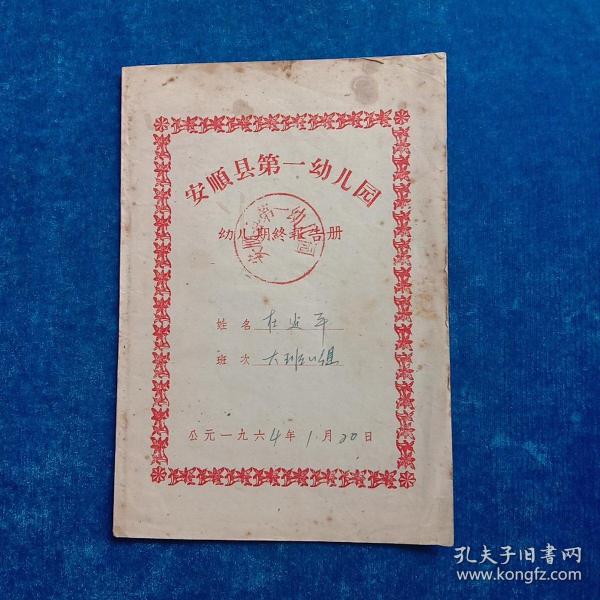 安順县第一幼儿园
幼儿期終報告册
姓名 杜 平
班次 大班
公元一九六4年1月20日
孔夫子旧書网
www.kongfz.com